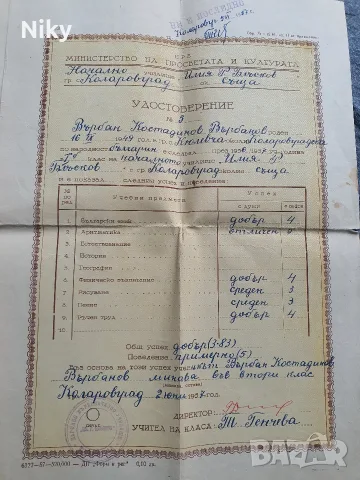 Niky
НР
МИНИСТЕРСТВО НА ПРОСВЕТАТА И КУЛТУРАТА
Начално училище Илия Р. Блъсков
гр. Коларовград ок. Съща
УДОСТОВЕРЕНИЕ
№ 5
Върбан Костадинов Върбанов роден
1949 год. Коларовградска
по народност българин е следвал през учебната година
клас на началното училище Илия Р.
Блъсков гр. Коларовград съща
и е показал следния успех и поведение
№ по ред
Учебни предмети
Успех
с думи
с цифри
1 Български език добър 4
2 Аритметика отличен
3 Естествознание
4 История
5 География
6 Физическо възпитание добър 4
7 Рисуване среден 3
8 Пение среден 3
9 Ручен труд добър 4
10
Общ успех добър (3·83)
Поведение примерно (5)
Въз основа на този успех Върбан Костадинов
Върбанов минава във втори клас
Коларовград 2 юли
ДИРЕКТОР:
УЧИТЕЛ НА КЛАСА: Т. Генчева
bazar.bg